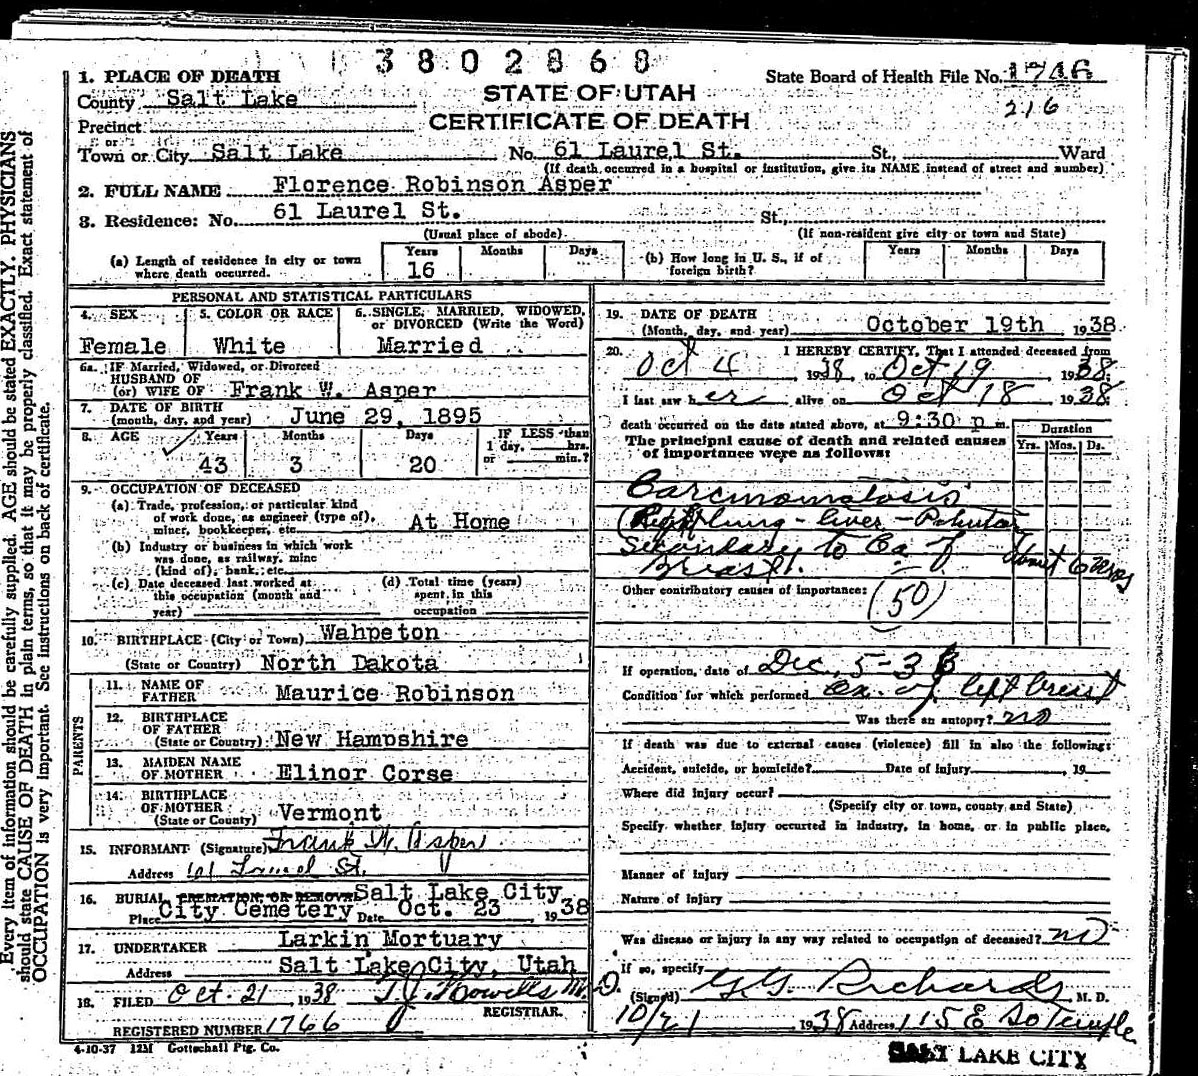 3802868
1. PLACE OF DEATH
State Board of Health File No. 1746
County Salt Lake
STATE OF UTAH
216
Precinct
CERTIFICATE OF DEATH
or
Town or City Salt Lake No. 61 Laurel St. St., Ward
(If death occurred in a hospital or institution, give its NAME instead of street and number)
2. FULL NAME Florence Robinson Asper
3. Residence: No. 61 Laurel St. St.,
(Usual place of abode) (If non-resident give city or town and State)
(a) Length of residence in city or town where death occurred. Years 16 Months Days
(b) How long in U. S., if of foreign birth? Years Months Days
PERSONAL AND STATISTICAL PARTICULARS
4. SEX Female
5. COLOR OR RACE White
6. SINGLE, MARRIED, WIDOWED, or DIVORCED (Write the Word) Married
6a. IF Married, Widowed, or Divorced
HUSBAND OF
(or) WIFE OF Frank W. Asper
7. DATE OF BIRTH
(month, day, and year) June 29, 1895
8. AGE Years 43 Months 3 Days 20 IF LESS than 1 day, hrs. or min.?
9. OCCUPATION OF DECEASED
(a) Trade, profession, or particular kind
of work done, as engineer (type of),
miner, bookkeeper, etc. At Home
(b) Industry or business in which work
was done, as railway, mine
(kind of), bank, etc.
(c) Date deceased last worked at
this occupation (month and
year)
(d) Total time (years)
spent in this
occupation
10. BIRTHPLACE (City or Town) Wahpeton
(State or Country) North Dakota
PARENTS
11. NAME OF
FATHER Maurice Robinson
12. BIRTHPLACE
OF FATHER
(State or Country) New Hampshire
13. MAIDEN NAME
OF MOTHER Elinor Corse
14. BIRTHPLACE
OF MOTHER
(State or Country) Vermont
15. INFORMANT (Signature) Frank W. Asper
Address 61 Laurel St.
16. BURIAL, CREMATION, OR REMOVAL Salt Lake City
Place City Cemetery Date Oct. 23, 1938
17. UNDERTAKER Larkin Mortuary
Address Salt Lake City, Utah
18. FILED Oct. 21, 1938 T. J. Howells M.D.
REGISTRAR.
REGISTERED NUMBER 1766
4-10-37 12M Gottschall Ptg. Co.
19. DATE OF DEATH
(Month, day, and year) October 19th 1938
20. I HEREBY CERTIFY, That I attended deceased from
Oct 4, 1938, to Oct 19, 1938.
I last saw her alive on Oct 18, 1938
death occurred on the date stated above, at 9:30 p m.
The principal cause of death and related causes
of importance were as follows:
Duration
Yrs. Mos. Ds.
Carcinomatosis
lung - liver -
Secondary to Ca. of
Breast.
About 6
Other contributory causes of importance:
(50)
If operation, date of Dec, 5-36
Condition for which performed Ca. of left breast
Was there an autopsy? no
If death was due to external causes (violence) fill in also the following:
Accident, suicide, or homicide? Date of injury , 19
Where did injury occur?
(Specify city or town, county and State)
Specify whether injury occurred in industry, in home, or in public place.
Manner of injury
Nature of injury
Was disease or injury in any way related to occupation of deceased? no
If so, specify
(Signed) G. G. Richards, M. D.
10/21 1938 Address 115 E So Temple
SALT LAKE CITY
Every item of information should be carefully supplied. AGE should be stated EXACTLY. PHYSICIANS
should state CAUSE OF DEATH in plain terms, so that it may be properly classified. Exact statement of
OCCUPATION is very important. See instructions on back of certificate.